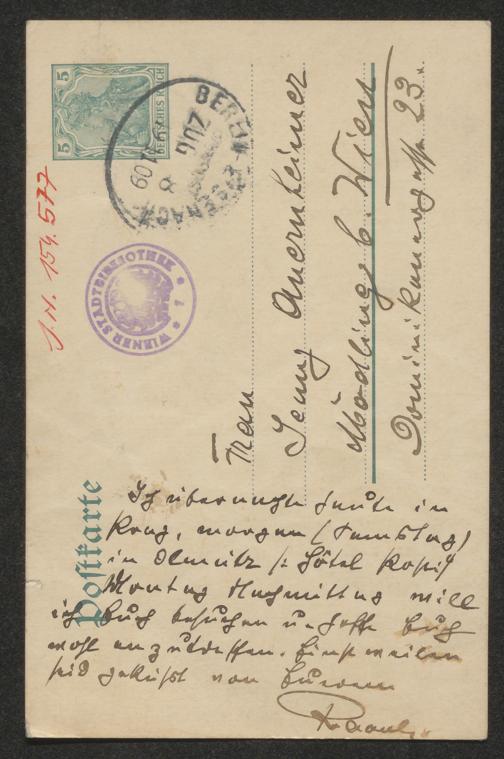 Postkarte
5 5
DEUTSCHES REICH
BERLIN-EISENACH
ZUG
J.N. 154.577
WIENER STADTBIBLIOTHEK
* 1 *
Jenny Auernheimer
Mödling b. Wien
23.
Ich übernachte heute in
Prag, morgen (Samstag)
in Olmütz /: Hôtel
Montag Nachmittag will
ich Euch besuchen u. hoffe Euch
wohl anzutreffen. Einstweilen
seid geküßt von Eurem
Raoul